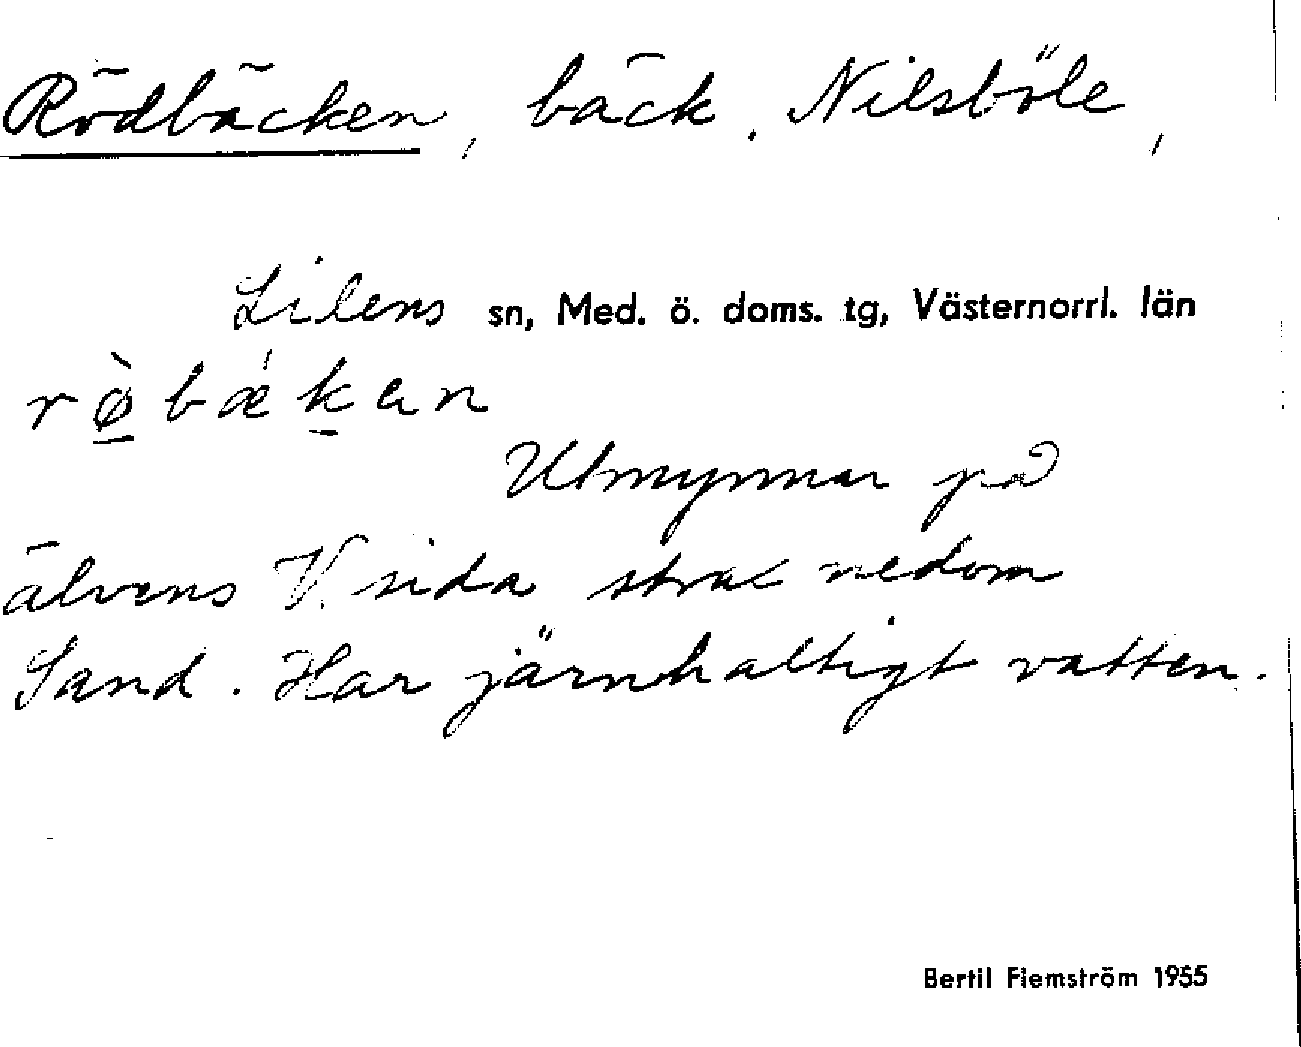 Rödbäcken, bäck. Nilsböle,
Lidens sn, Med. ö. doms. tg, Västernorrl. län
rø̀bǽkan
Utmynnar på
älvens V. sida strax nedom
Sand. Har järnhaltigt vatten.
Bertil Flemström 1955